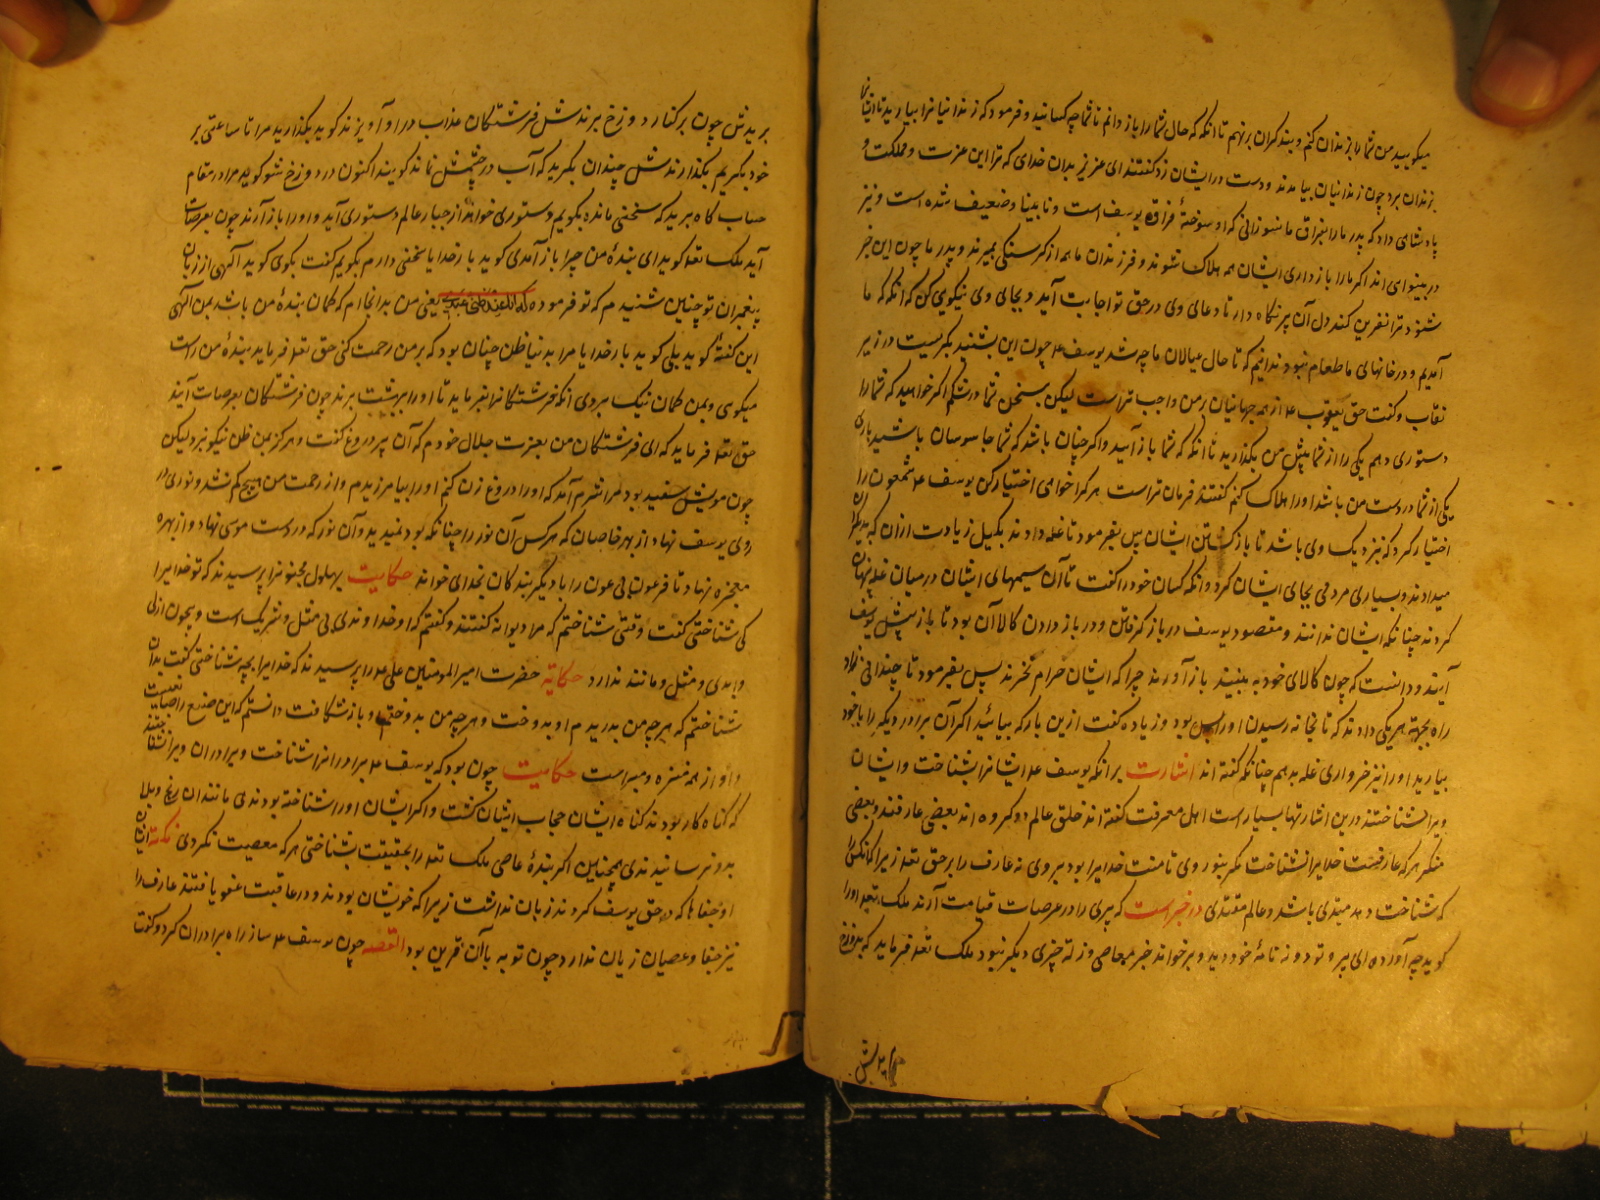 میکوبید من شما را بزندان کنم و بند کران برنهم تا انکه که حال شما را باز دانم تا شما چه کسانید و فرمود که زندانیانرا بیارید تا ایشانرا
بزندان برد چون زندانیان بیامدند و دست در ایشان زد کفتند ای عزیز بدان خدای که ترا این عزت و مملکت و
پادشاهی داد که پدر ما را بفراق ما نسوزانی که او سوختهٔ فراق یوسف است و نابینا و ضعیف شده است و نیز
در بینوایی اند اکر ما را باز داری ایشان همه هلاک شوند و فرزندان ما هم از کرسنکی بمیرند و پدر ما چون این خبر
شنود ترا نفرین کند دل آن پیر نکاه دار تا دعای وی در حق تو اجابت آید و بجای وی نیکویی کن که انکه که ما
آمدیم و در خانهای ما طعام نبود ندانیم که تا حال عیالان ما چه شد یوسف ع چون این بشنید بکریست در زیر
نقاب و کفت حق یعقوب ع از همه جهانیان بر من واجب تر است لیکن بسخن شما در شکم اکر خواهید که شما را
دستوری دهم یکی را از شما پیش من بکذارید تا انکه که شما باز آیید و اکر چنان باشد که شما جاسوسان باشید باری
یکی از شما در دست من باشد او را هلاک کنم کفتند فرمان تراست هر کرا خواهی اختیار کن یوسف ع شمعون را
اختیار کرد که نزدیک وی باشد تا باز کشتن ایشان پس بفرمود تا غله دادند بکیل زیادت ازان که بدیکران
میدادند و بسیاری مردمی بجای ایشان کرد و انکه کسان خود را کفت تا آن سیمهای ایشان در میان غله پنهان
کردند چنانکه ایشان ندانند و مقصود یوسف در باز کرفتن و در باز دادن کالا آن بود تا باز پیش یوسف
آیند و دانست که چون کالای خود به بینند باز آورند چرا که ایشان حرام نخرند پس بفرمود تا چندانی زاد
راه بجهة هر یکی دادند که تا بخانه رسیدن او را بس بود و زیاده کفت ازین بار که بیائید اکر آن برادر دیکر را با خود
بیارید او را نیز خرواری غله بدهم چنانکه کفته اند اشارت برانکه یوسف ع ایشانرا شناخت و ایشان
ویرا نشناختند درین اشارتها بسیار است اهل معرفت کفته اند خلق عالم دو کروه اند بعضی عارفند و بعضی
منکر هر که عارفست خدایرا نشناخت مکر بنور وی تا منت خدایرا بود بر وی نه عارف را بر حق تعه زیرا که انکس را
که شناخت دهد مبتدی باشد و عالم مقتدی در خبر است که پیری را در عرصات قیامت آرند ملک تعه او را
کوید چه آورده ای پیر و تو دو نه نامهٔ خود دید و بر خواند جز معاصی و زلة چیزی دیکر نبود ملک تعه فرماید که بدوزخ
بریدش
بریدش چون بر کنار دوزخ برندش فرشتکان عذاب در او آویزند کوید بکذارید مرا تا ساعتی بر
خود بکریم بکذارندش چندان بکرید که آب در چشمش نماند کویند اکنون در دوزخ شو کوید مرا در مقام
حساب کاه برید که سخنی مانده بکویم دستوری خواهند از جبار عالم دستوری آید و او را باز آرند چون بعرصات
آید ملک تعه کوید ای بندهٔ من چرا باز آمدی کوید بار خدایا سخنی دارم بکویم کفت بکوی کوید آلهی از زبان
پیغمبران تو چنین شنیدم که تو فرموده که انا عند ظن عبدی یعنی من بدانجا ام که کمان بندهٔ من باشد بمن آلهی
این کفتهٔ کوید بلی کوید بار خدایا مرا بدنیا ظن چنان بود که بر من رحمت کنی حق تعه فرماید بندهٔ من راست
میکوی و بمن کمان نیک میبردی انکه فرشتکانرا بفرماید تا او را ببهشت برند چون فرشتکان بعرصات آیند
حق تعه فرماید که ای فرشتکان من بعزت جلال خودم که آن پیر دروغ کفت و هرکز بمن ظن نیکو نبرد لیکن
چون مویش سفید بود مرا شرم آمد که او را دروغ زن کنم او را بیامرزیدم و از رحمت من هیچ کم نشد و نوری در
روی یوسف نهاد از بهر خاصان که هر کس آن نور را چنانکه بود نمیدید و آن نور که در دست موسی نهاد و از بهره
معجزه نهاد تا فرعون بی عون را با دیکر بندکان بخدای خواند حکایت بهلول مجنونرا پرسیدند که تو خدا یرا
کی شناختی کفت وقتی شناختم که مرا دیوانه کفتند و کفتم که او خداوندی بی مثل و شریک است و بیچون ازلی
و ابدی و مثل و مانند ندارد حکایة حضرت امیرالمومنین علی ع را پرسیدند که خدایرا بچه شناختی کفت بدان
شناختم که هر چه من بدریدم او بدوخت و هر چه من بدوختم او باز شکافت دانستم که این صنع را صانعیست
و او از همه منزه و مبراست حکایت چون بود که یوسف ع برادرانرا شناخت و برادران ویرا نشناختند
که کناه کار بودند کناه ایشان حجاب ایشان کشت و اکر ایشان او را شناخته بودندی مانند ان رنج و بلا
بدو نرسانیدندی همچنین اکر بندهٔ عاصی ملک تعه را بحقیقت بشناختی هرکه معصیت نکردی نکته ایشان
او جفاها که در حق یوسف کردند زیان نداشت زیرا که خویشان بودند و در عاقبت عفو یافتند عارف را
نیز جفا و عصیان زیان ندارد چون توبه با آن قرین بود القصه چون یوسف ع ساز راه برادران کرد و کفت